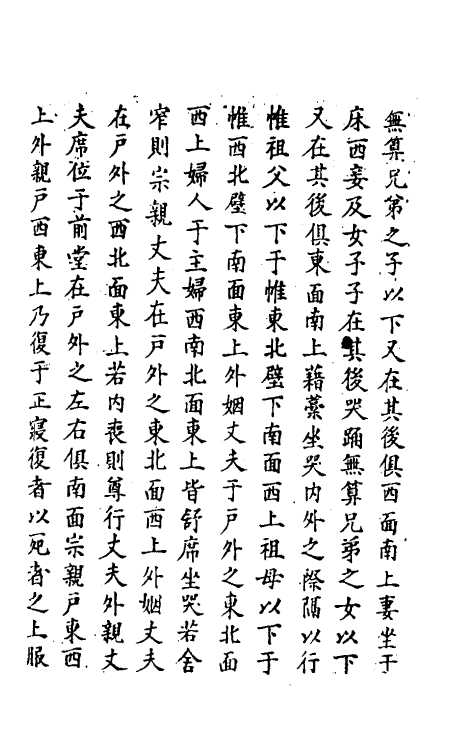 無算兄第之子以下又在其後俱西面南上妻坐于
床西妾及女子子在其後哭踊無算兄弟之女以下
又在其後俱東面南上藉藁坐哭内外之際隔以行
帷祖父以下于帷東北壁下南面西上祖母以下于
帷西北壁下南面東上外姻丈夫于戸外之東北面
西上婦人于主婦西南北面東上皆舒席坐哭若舍
窄則宗親丈夫在戸外之東北面西上外姻丈夫
在戸外之西北面東上若内喪則尊行丈夫外親丈
夫席位于前堂在戸外之左右俱南面宗親戸東西
上外親戸西東上乃復于正寢復者以死者之上服